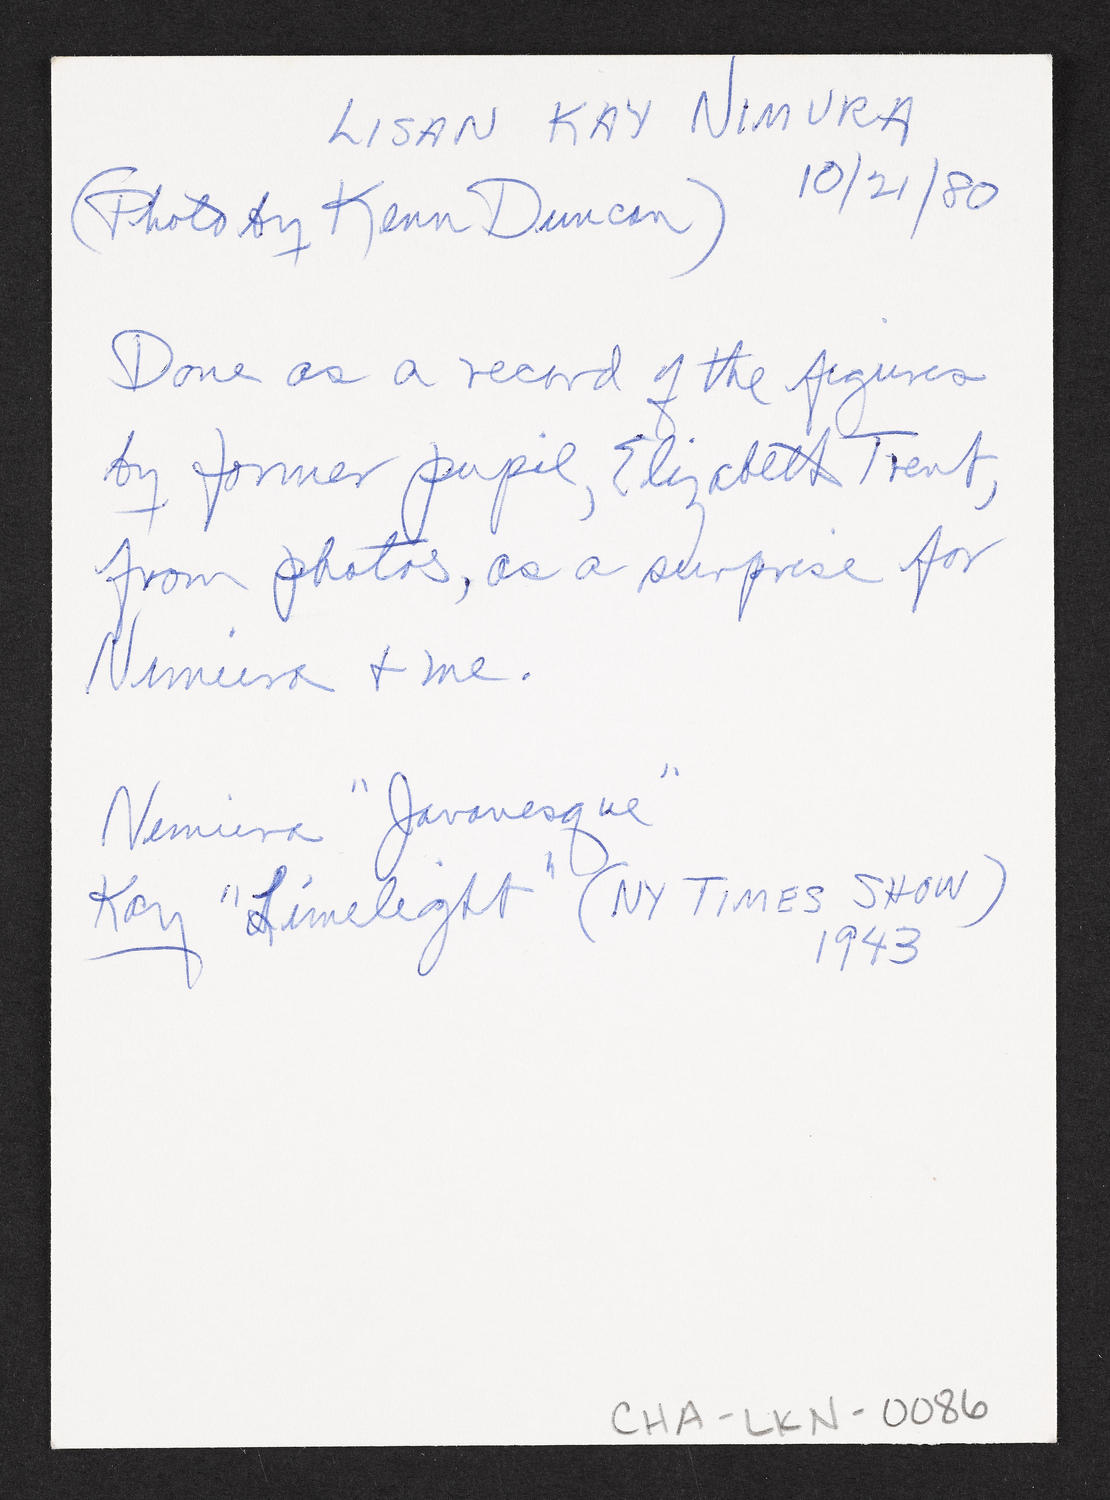 LISAN KAY NIMURA
10/21/80
(Photo by Kenn Duncan)
Done as a record of the figures
by former pupil, Elizabeth Trent,
from photos, as a surprise for
Nimura + me.
Nimura "Javanesque"
Kay "Limelight" (NY TIMES SHOW)
1943
CHA-LKN-0086